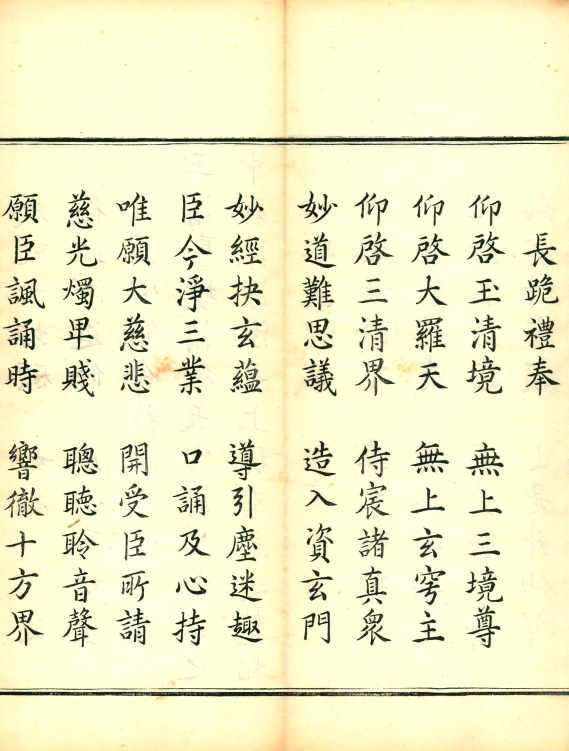 長跪禮奉
仰啓玉清境 無上三境尊
仰啓大羅天 無上玄穹主
仰啓三清界 侍宸諸真衆
妙道難思議 造入資玄門
妙經抉玄蘊 導引塵迷趣
臣今淨三業 口誦及心持
唯願大慈悲 開受臣所請
慈光燭卑賤 聰聽聆音聲
願臣諷誦時 響徹十方界